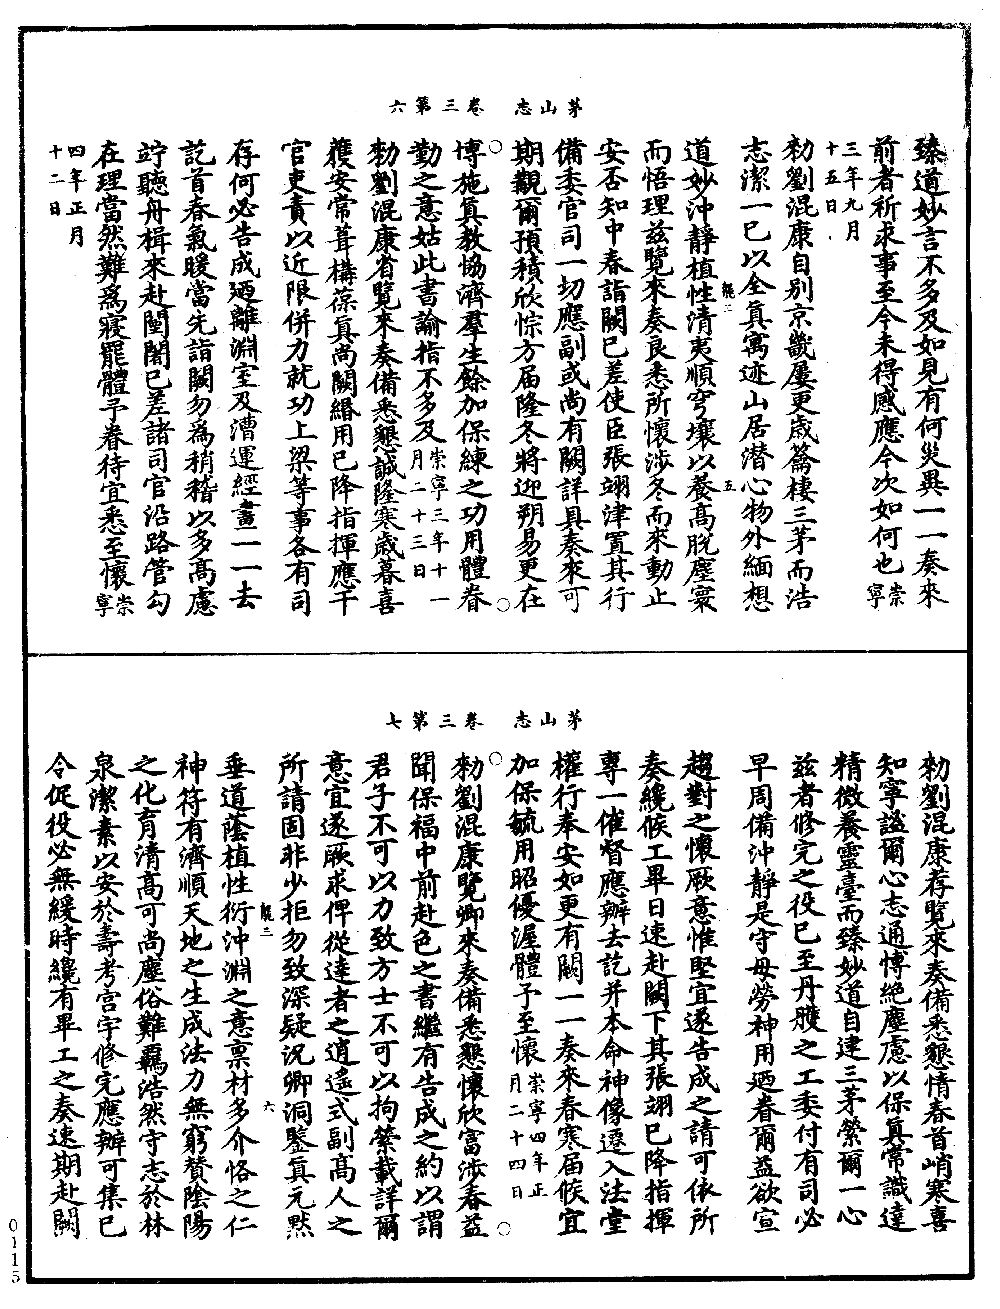 茅山志　卷三第六
臻道妙言不多及如見有何災異一一奏來
前者祈求事至今未得感應今次如何也崇寧
三年九月
十五日
勑劉混康自別京畿屢更歲籥棲三茅而浩
志潔一己以全真寓迹山居潜心物外緬想
道妙沖靜植性清夷順穹壤以養高脫塵寰
而悟理茲覽來奏良悉所懷涉冬而來動止
安否知中春詣闕已差使臣張翊津置其行
備委官司一切應副或尚有闕詳具奏來可
期觀爾預積欣悰方届隆冬將迎朔易更在
○
博施真教協濟羣生餘加保練之功用體眷
勤之意姑此書諭指不多及崇寧三年十一
月二十三日
○
勑劉混康省覽來奏備悉懇誠隆寒歲暮喜
獲安常葺構葆真尚闕緡用已降指揮應干
官吏責以近限併力就功上梁等事各有司
存何必告成廼離淵室及漕運經畫一一去
訖首春氣暖當先詣闕勿爲稍稽以多高慮
竚聽舟楫來赴闉闍已差諸司官沿路管勾
在理當然難爲寢罷體予眷待宜悉至懷崇寧
四年正月
十二日
茅山志　卷三第七
勑劉混康荐覽來奏備悉懇情春首峭寒喜
知寧謐爾心志通博絶塵慮以保真常識達
精微養靈臺而臻妙道自建三茅縈爾一心
茲者修完之役已至丹雘之工委付有司必
早周備沖靜是守毋勞神用廼眷爾益欲宣
趨對之懷厥意惟堅宜遂告成之請可依所
奏纔候工畢日速赴闕下其張翊已降指揮
專一催督應辦去訖并本命神像遵入法堂
權行奉安如更有闕一一奏來春寒届候宜
加保毓用昭優渥體予至懷崇寧四年正
月二十四日
○
○
勑劉混康覽卿來奏備悉懇懷欣富涉春益
聞保福中前赴邑之書繼有告成之約以謂
君子不可以力致方士不可以拘縈載詳爾
意宜遂厥求俾從達者之逍遙式副高人之
所請固非少拒勿致深疑況卿洞鑒真元默
垂道蔭植性衍沖淵之意稟材多介恪之仁
神符有濟順天地之生成法力無窮贊陰陽
之化育清高可尚塵俗難羈浩然守志於林
泉潔素以安於壽考宮宇修完應辦可集已
令促役必無緩時纔有畢工之奏速期赴闕
0115